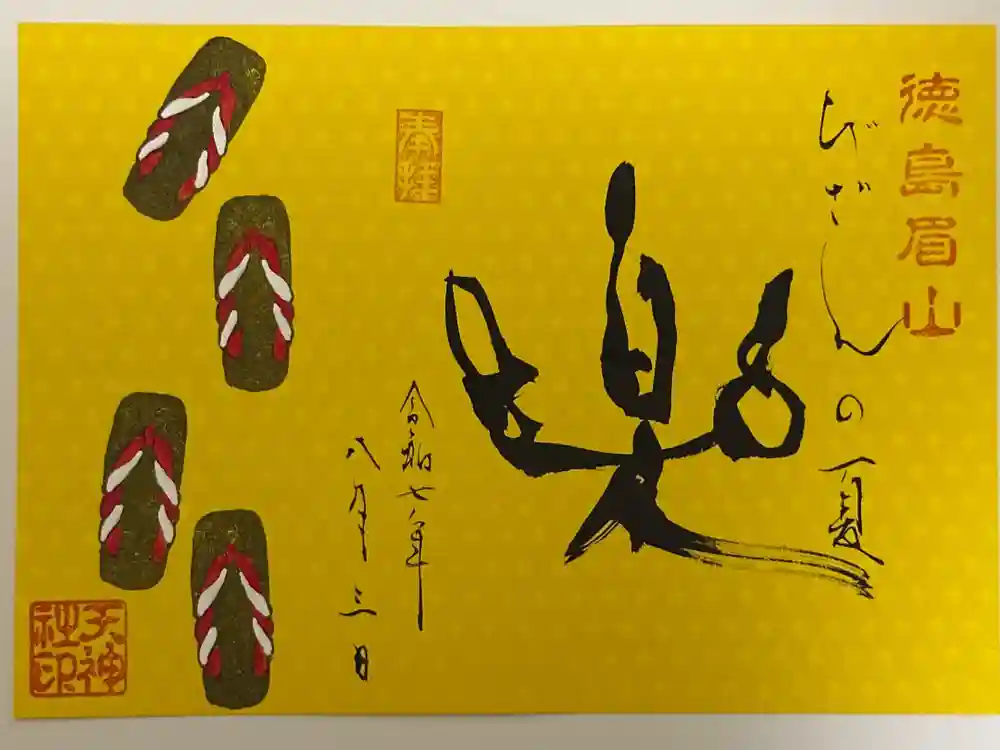 徳島眉山
びざんの夏
楽
奉拝
令和七年
八月三日
天神
社印